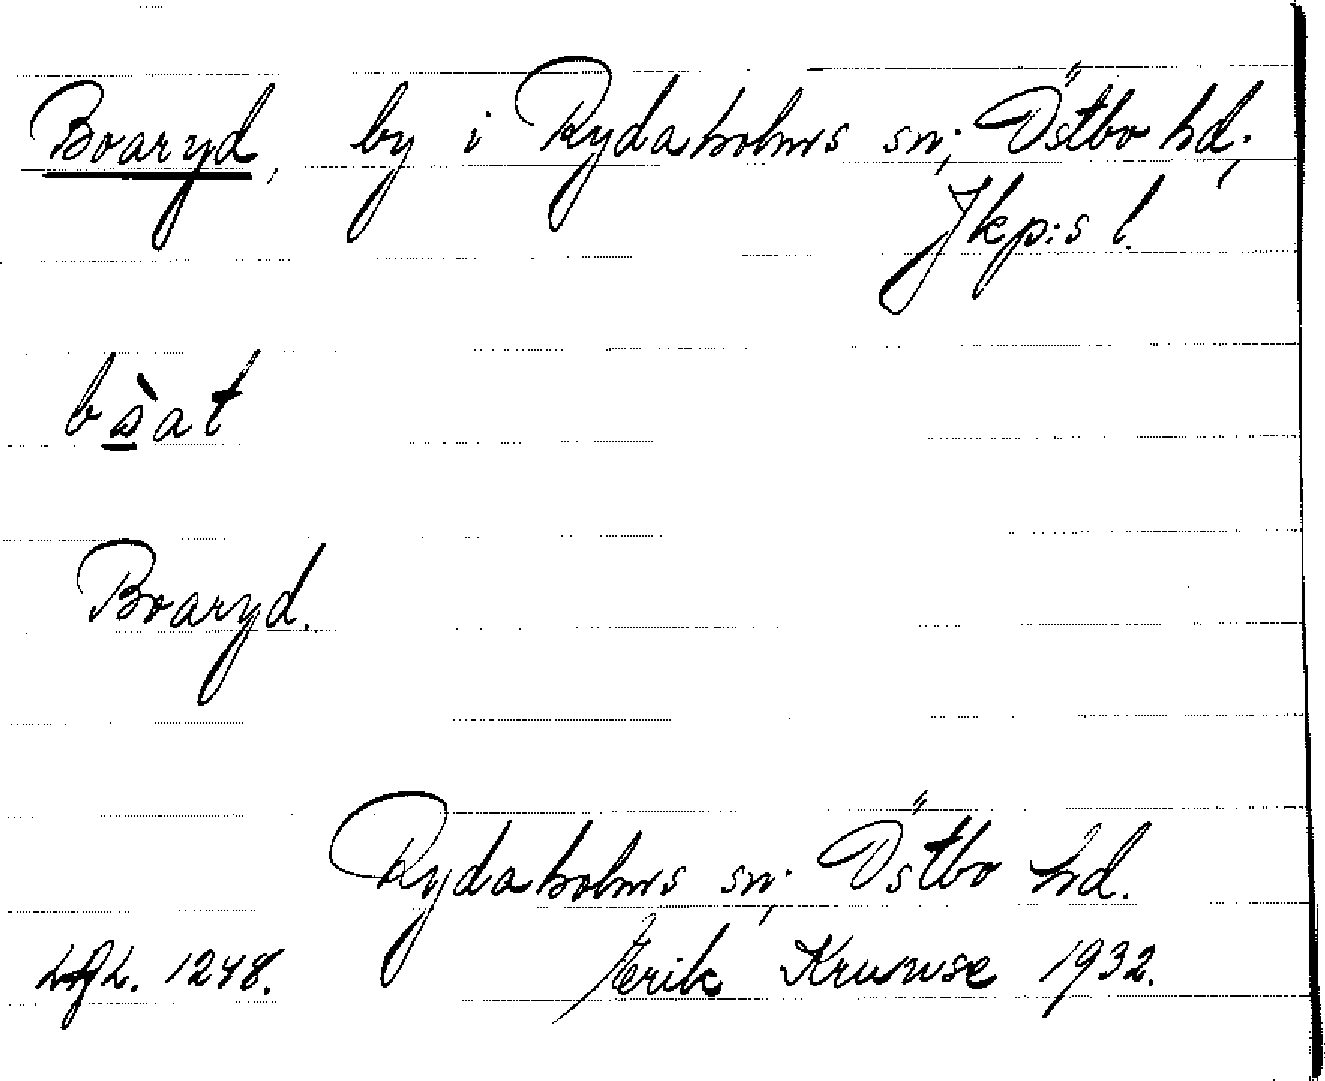 Boaryd, by i Rydaholms sn; Östbo hd;
Jkp:s l.
Boaryd.
Rydaholms sn; Östbo hd.
1248. Erik Kruuse 1932.